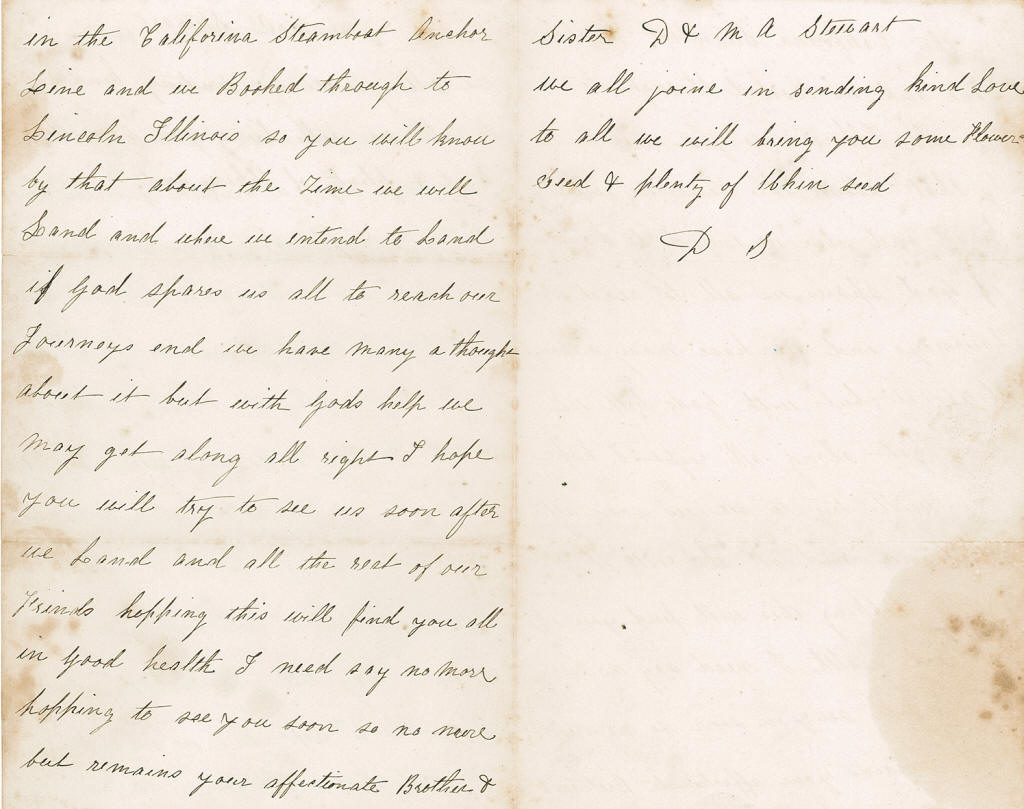 in the Califorina Steamboat Anchor
Line and we Booked through to
Lincoln Illinois so you will know
by that about the Time we will
Land and where we intend to Land
if God spares us all to reach our
Journeys end we have many a thought
about it but with Gods help we
may get along all right I hope
you will try to see us soon after
we Land and all the rest of our
Frinds hopping this will find you all
in good health I need say no more
hopping to see you soon so no more
but remains your affectionate Brother &
Sister D & M A Stewart
we all joine in sending kind Love
to all we will bring you some Flower
Seed & plenty of seed
D S